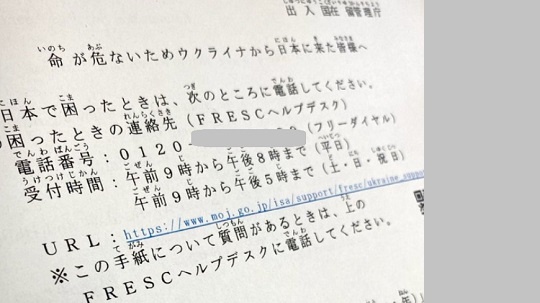 出入国在留管理庁
命が危ないためウクライナから日本に来た皆様へ
日本で困ったときは、次のところに電話してください。
困ったときの連絡先（ＦＲＥＳＣヘルプデスク）
電話番号：０１２０－（フリーダイヤル）
受付時間：午前９時から午後８時まで（平日）
午前９時から午後５時まで（土・日・祝日）
ＵＲＬ：https://www.moj.go.jp/isa/support/fresc/ukraine_suppo
※この手紙について質問があるときは、上の
ＦＲＥＳＣヘルプデスクに電話してください。